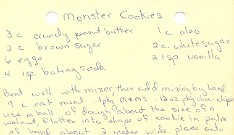 Monster Cookies
3 c crunchy peanut butter 1 c oleo
2 c brown sugar 2 c white sugar
6 eggs 2 tsp vanilla
4 tsp. baking soda
Beat well with mixer, then add mixing by hand
9 c oat meal 1 pkg M&Ms 12 oz pkg choc chips
use a ball of dough about the size of a
walnut, flatten into shape of cookie in palm
of hand about 2 inches wide, place onto